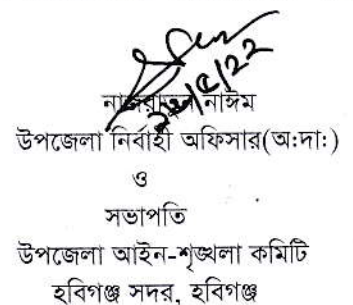 ২৯/৫/২২
নাজরাতুন নাঈম
উপজেলা নির্বাহী অফিসার(অ:দা:)
ও
সভাপতি
উপজেলা আইন-শৃঙ্খলা কমিটি
হবিগঞ্জ সদর, হবিগঞ্জ